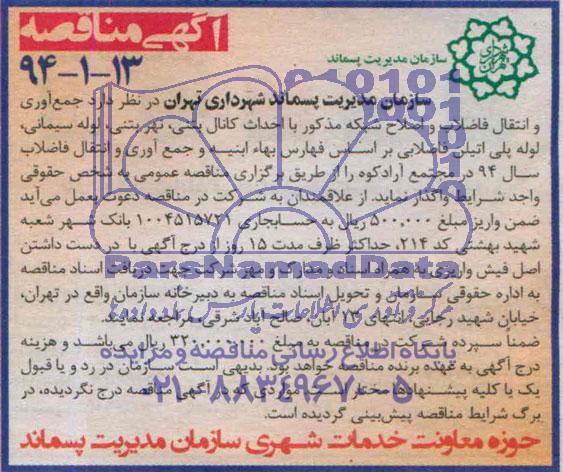 آگهی مناقصه
۹۴-۱-۱۳
سازمان مدیریت پسماند
سازمان مدیریت پسماند شهرداری تهران در نظر دارد جمع‌آوری
و انتقال فاضلاب و اصلاح شبکه مذکور با احداث کانال بتنی، نهر بتنی، لوله سیمانی،
لوله پلی اتیلن فاضلابی بر اساس فهارس بهاء ابنیه و جمع آوری و انتقال فاضلاب
سال ۹۴ در مجتمع آرادکوه را از طریق برگزاری مناقصه عمومی به شخص حقوقی
واجد شرایط واگذار نماید. از علاقمندان به شرکت در مناقصه دعوت بعمل می‌آید
ضمن واریز مبلغ ۵۰۰,۰۰۰ ریال به حسابجاری ۱۰۰۴۵۱۵۷۲۱ بانک شهر شعبه
شهید بهشتی کد ۲۱۴، حداکثر ظرف مدت ۱۵ روز از درج آگهی با در دست داشتن
اصل فیش واریزی به همراه اسناد و مدارک و مهر شرکت جهت دریافت اسناد مناقصه
به اداره حقوقی سازمان و تحویل اسناد مناقصه به دبیرخانه سازمان واقع در تهران،
خیابان شهید رجایی، انتهای ۱۳ آبان، صالح آباد شرقی مراجعه نمایند.
ضمناً سپرده شرکت در مناقصه به مبلغ ریال می‌باشد و هزینه
درج آگهی به عهده برنده مناقصه خواهد بود. بدیهی است سازمان در رد و یا قبول
یک یا کلیه پیشنهادها مختار است. مواردی که در آگهی مناقصه درج نگردیده، در
برگ شرایط مناقصه پیش‌بینی گردیده است.
حوزه معاونت خدمات شهری سازمان مدیریت پسماند
ParsNamadData
پایگاه اطلاع رسانی مناقصه و مزایده
۰۲۱-۸۸۳۴۹۶۷۰-۵